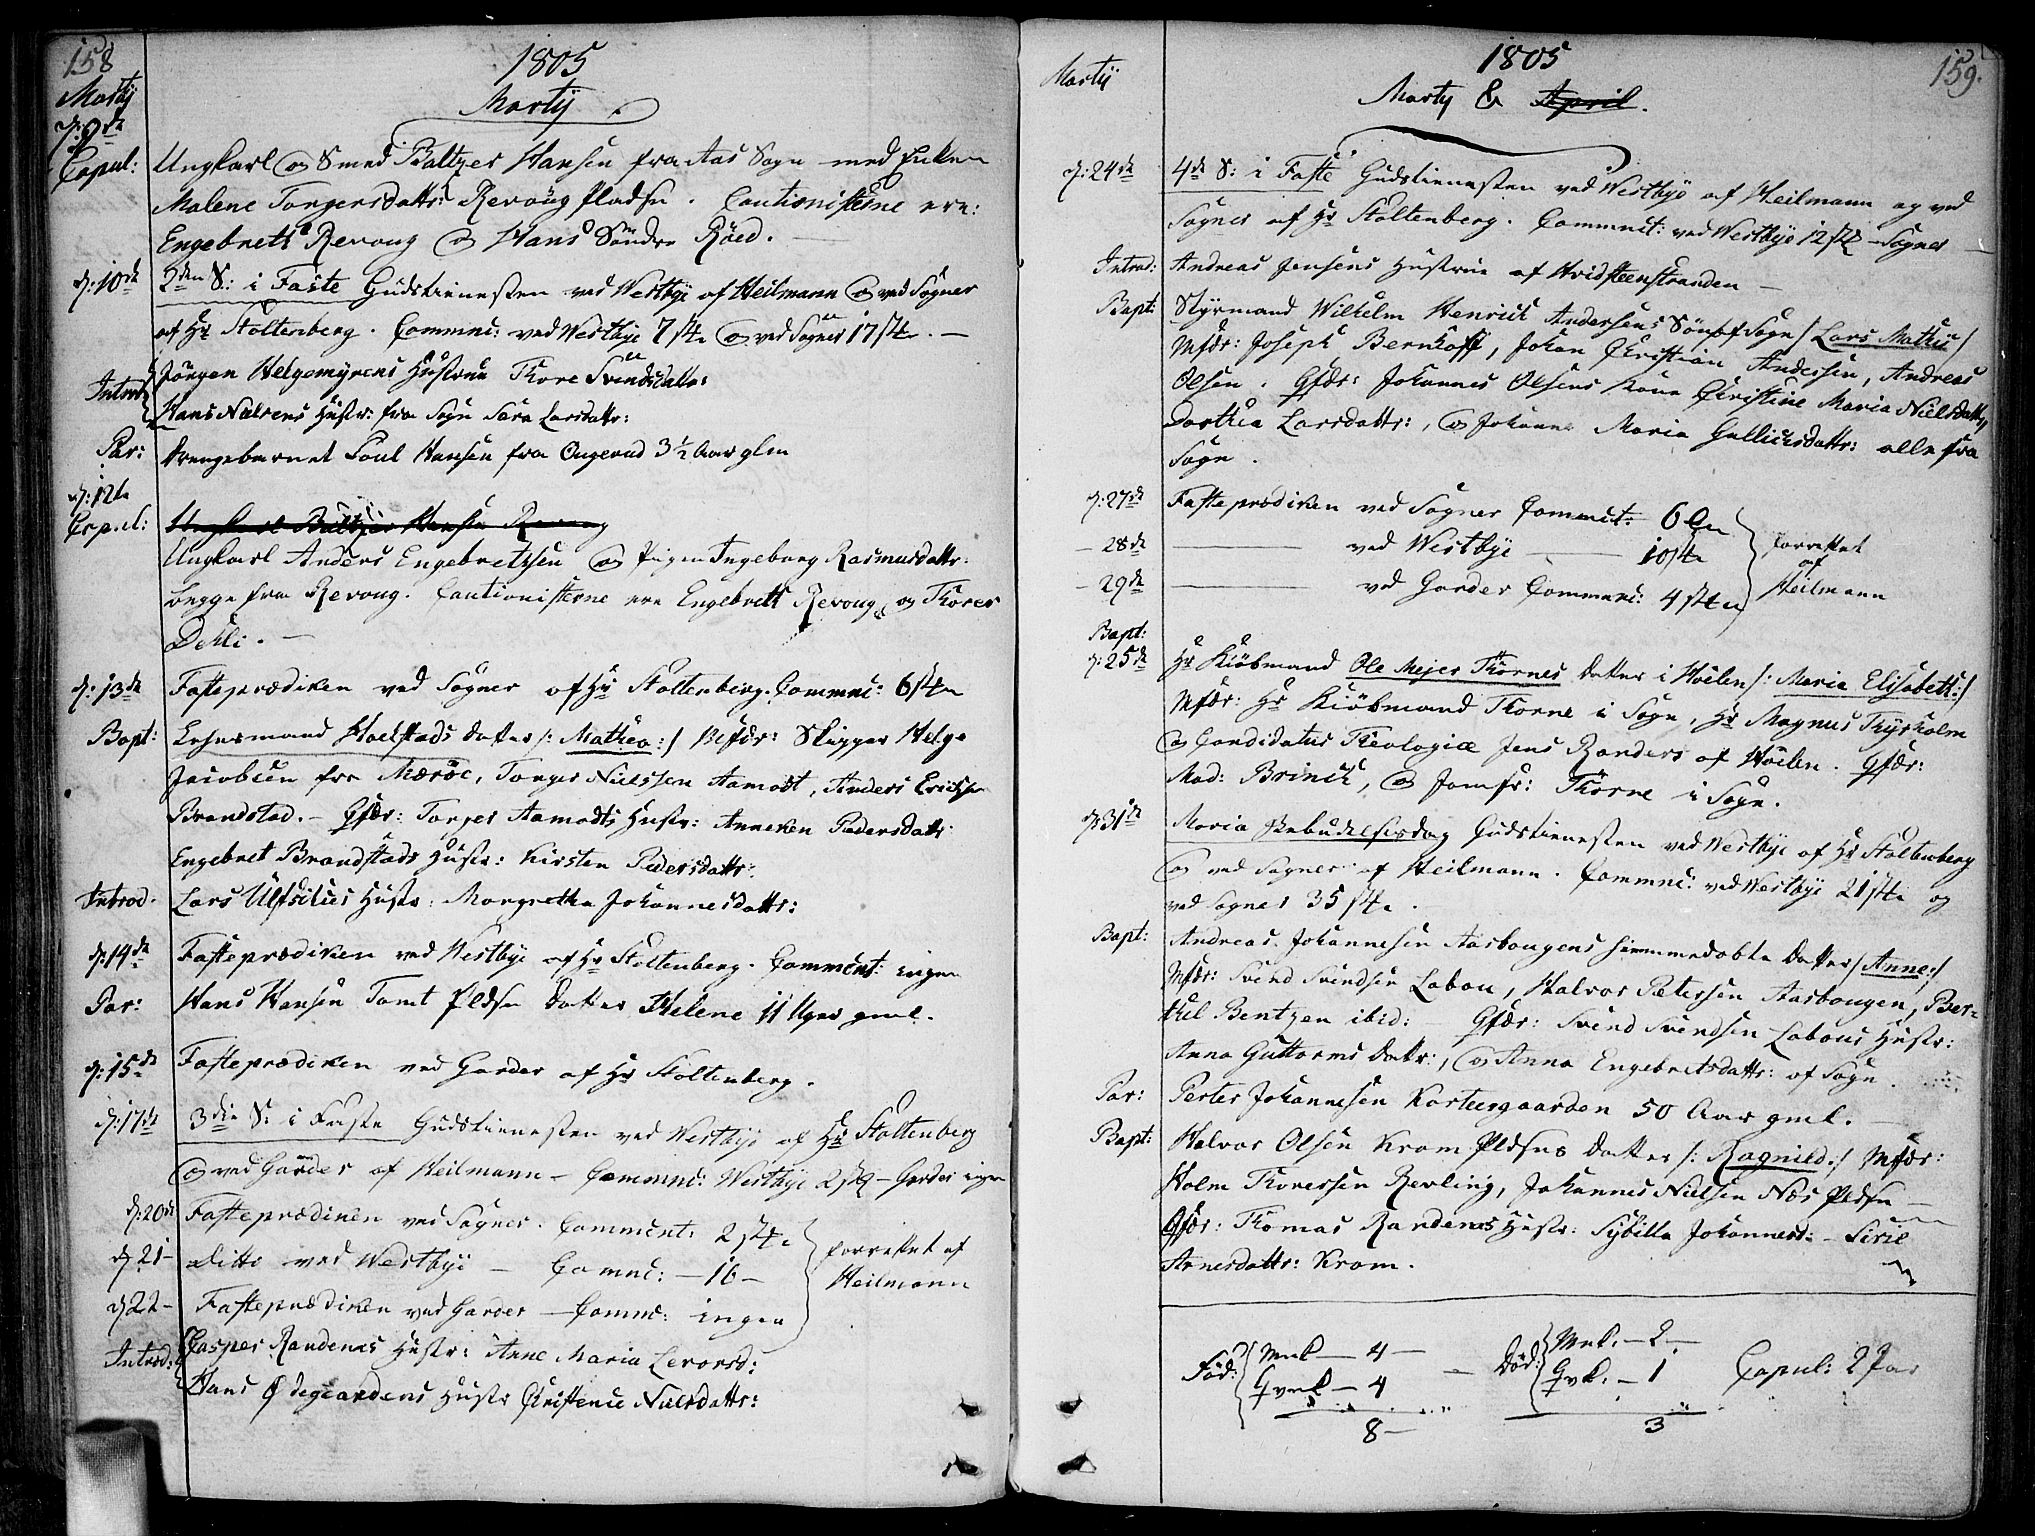 158
1805
Martij
Martij
d: 9de
Copul: Ungkarl og Smed Baltzer Hansen fra Aas Sogn med Enken
Malene Torgersdattr: Revoug Pladsen. Cautionisterne ere:
Engebreth Revoug og Hans Söndre Röed.
d: 10de 2den S: i Faste Gudstienesten ved Westbye af Heilmann og ved Sogner
af Hr Stoltenberg. Communi: ved Westbye 7 stk og ved Sogner 17 stk. —
Introd: Jörgen Helgemyrens Hustrue Thore Svendsdatter
Hans Nielsens Hustr: fra Sogn Sara Larsdattr:
Par: Drengebarnet Poul Hansen fra Ougerud 3½ Aar glm
d: 12te
Copul: Ungkarl Baltzer Hansen Revoug
Ungkarl Anders Engebrethsen og Pigen Ingeborg Rasmusdattr:
begge fra Revoug. Cautionisterne ere Engebreth Revoug og Thorer
Dehli. —
d: 13de Fasteprædiken ved Sogner af Hr Stoltenberg. Communi: 6 stk
Bapt: Lehnsmand Kielstads datter /: Mathea :/ Mfdr: Skipper Helge
Jacobsen fra Mæröe, Torger Nielssen Aamodt, Anders Erichsen
Brandstad. – Qfdr: Torger Aamodts Hustr: Anneken Pedersdattr:
Engebret Brandstads Hustr: Kirsten Pedersdattr:
Introd. Lars Ulfsbies Hustr: Margrethe Johannesdattr:
d: 14de Fasteprædiken ved Westbye af Hr Stoltenberg. Communt: ingen
Par: Hans Hansen Tomt Pldsn Datter Helene 11 Uger gml.
d: 15de Fasteprædiken ved Garder af Hr Stoltenberg.
d: 17de 3die S: i Faste Gudstienesten ved Westbye af Hr Stoltenberg
og ved Garder af Heilmann – Communi: Westbye 2 stk – Garder ingen
d: 20de Fasteprædiken ved Sogner. Communt: 2 stk
d 21– Ditto ved Westbye – Communi: – 16 –
d 22– Fasteprædiken ved Garder – Communi: ingen
forrettet af
Heilmann
Introd: Casper Randenes Hustr: Anne Maria Levorsd:
Hans Ødegaardens Hustr Christenie Nielsdattr:
159.
1805
Martij
Martij & April.
d: 24de 4de S: i Faste Gudstienesten ved Westbye af Heilmann og ved
Sogner af Hr Stoltenberg. Communt: ved Westbye 12 stk – Sogner –
Introd: Andreas Jensens Hustrue af Hvidsteenstranden –
Bapt: Styrmand Wilhelm Henrich Andersens Sön af Sogn /: Lars Mathis :/
Mfdr: Joseph Bernhoft, Johan Christian Andersen, Andreas
Olsen. Qfdr: Johannes Olsens Kone Christine Maria Nielsdattr,
Dorthea Larsdattr:, og Johanne Maria Gullichsdattr: alle fra
Sogn.
d: 27de Fasteprædiken ved Sogner Communt: 6
– 28de ——— ved Westbye — 10 stk
– 29de ——— ved Garder Communi: 4 stk
forrettet
af
Heilmann
Bapt:
d: 25de Hr Kiöbmand Ole Mejer Thornes datter i Hölen /: Maria Elisabeth :/
Mfdr: Hr Kiöbmand Thorne i Sogn, Hr Magnus Thysholm
og Candidatus Theologiæ Jens Randers af Hölen. Qfdr:
Mad: Brinch, og Jomfr: Thorne i Sogn.
d 31te Maria Bebudelsesdag Gudstienesten ved Westbye af Hr Stoltenberg
og ved Sogner af Heilmann. Communi: ved Westbye 21 stk og
ved Sogner 35 stk.
Bapt: Andreas Johannesen Aasbougens hiemmedøbte Datter /: Anne :/
Mfdr: Svend Svendsen Labou, Halvor Petersen Aasbougen, Ber=
thel Bentzen ibid: – Qfdr: Svend Svendsen Labous Hustr:
Anna Guttorms dattr:, og Anna Engebretsdattr: af Sogn.
Par: Peder Johannesen Kortersgaarden 50 Aar gml. –
Bapt: Halvor Olsen Krom Pldsns datter /: Ragnild :/ Mfdr:
Holm Thoresen Revling, Johannes Nielsen Næs Pldsn –
Qfdr: Thomas Randenes Hustr: Sybilla Johannesd: – Sirie
Arnesdattr: Krom.
Föd: Mnk — 4 —
Qvnk — 4
8 –
Död: Mnk. – 2 –
Qvk. – 1
3
Copul: 2 Par